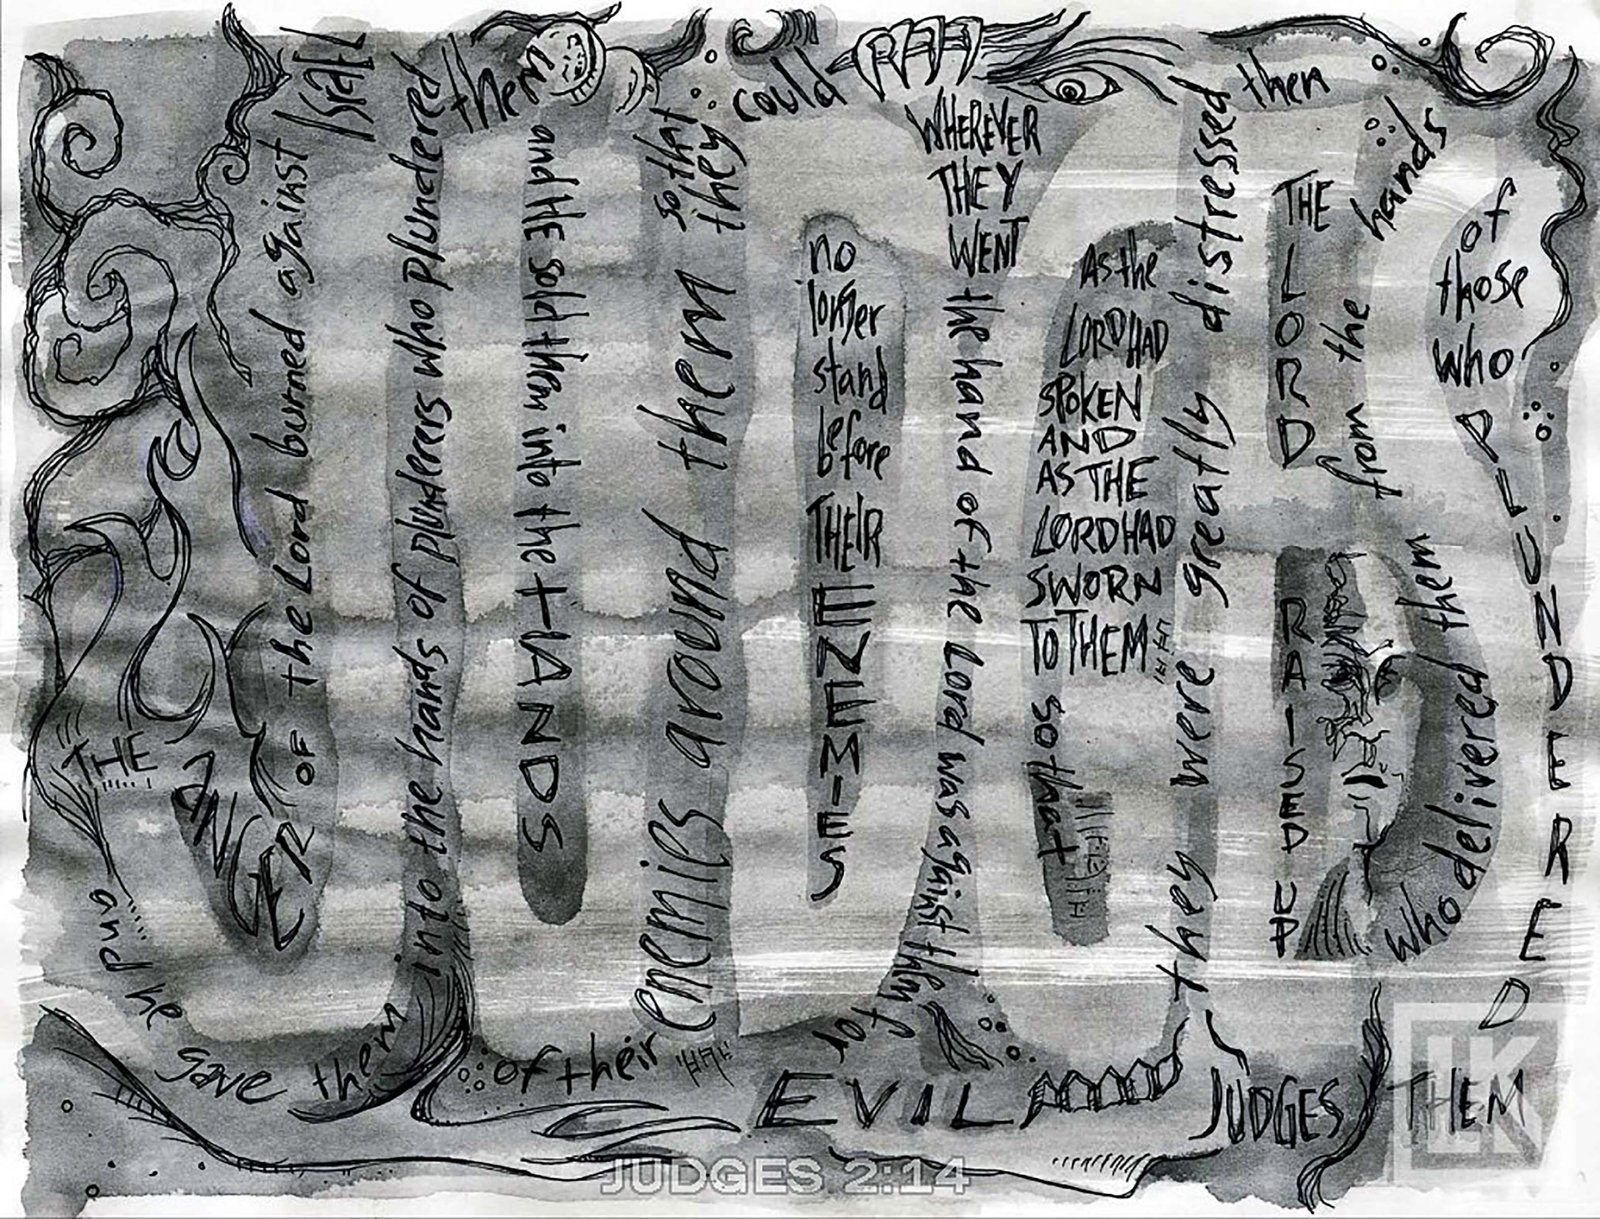 THE
ANGER
OF the Lord burned against
Israel
and he
gave them
into the hands of plunderers who plundered
them
and HE sold them into the HANDS
of their
enemies around them
so that
they
could
no
longer
stand
before
THEIR
ENEMIES
WHEREVER
THEY
WENT
the hand of the Lord was against them
for
EVIL
As the
LORD HAD
SPOKEN
AND
AS THE
LORD HAD
SWORN
TO THEM
so that
they were greatly distressed
then
THE
LORD
RAISED
UP
JUDGES
who delivered them
from the
hands
of
those
who
PLUNDERED
THEM
JUDGES 2:14
LK